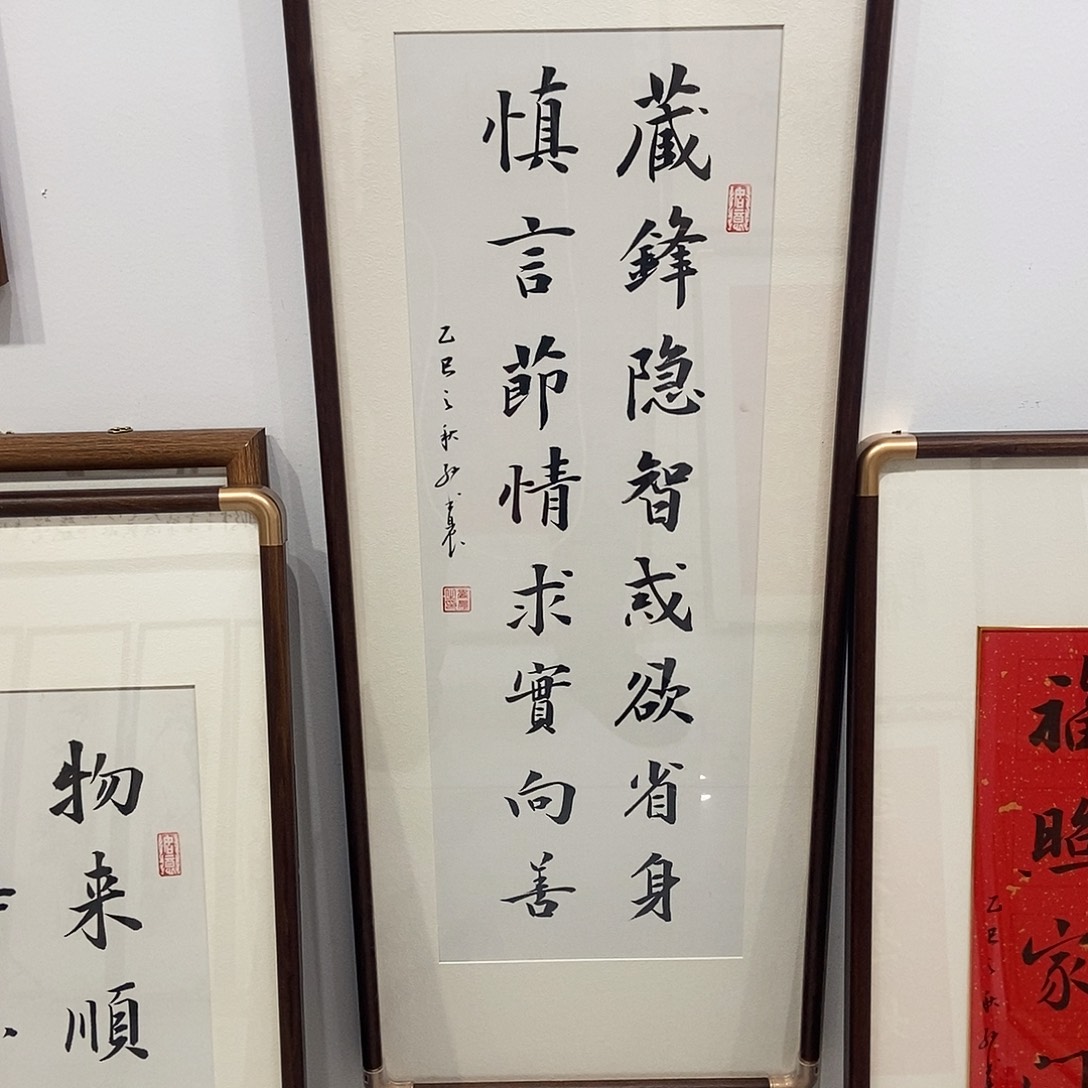 藏鋒隐智戒欲省身
慎言節情求實向善
乙巳之秋
物来順
福照家门
乙巳之秋